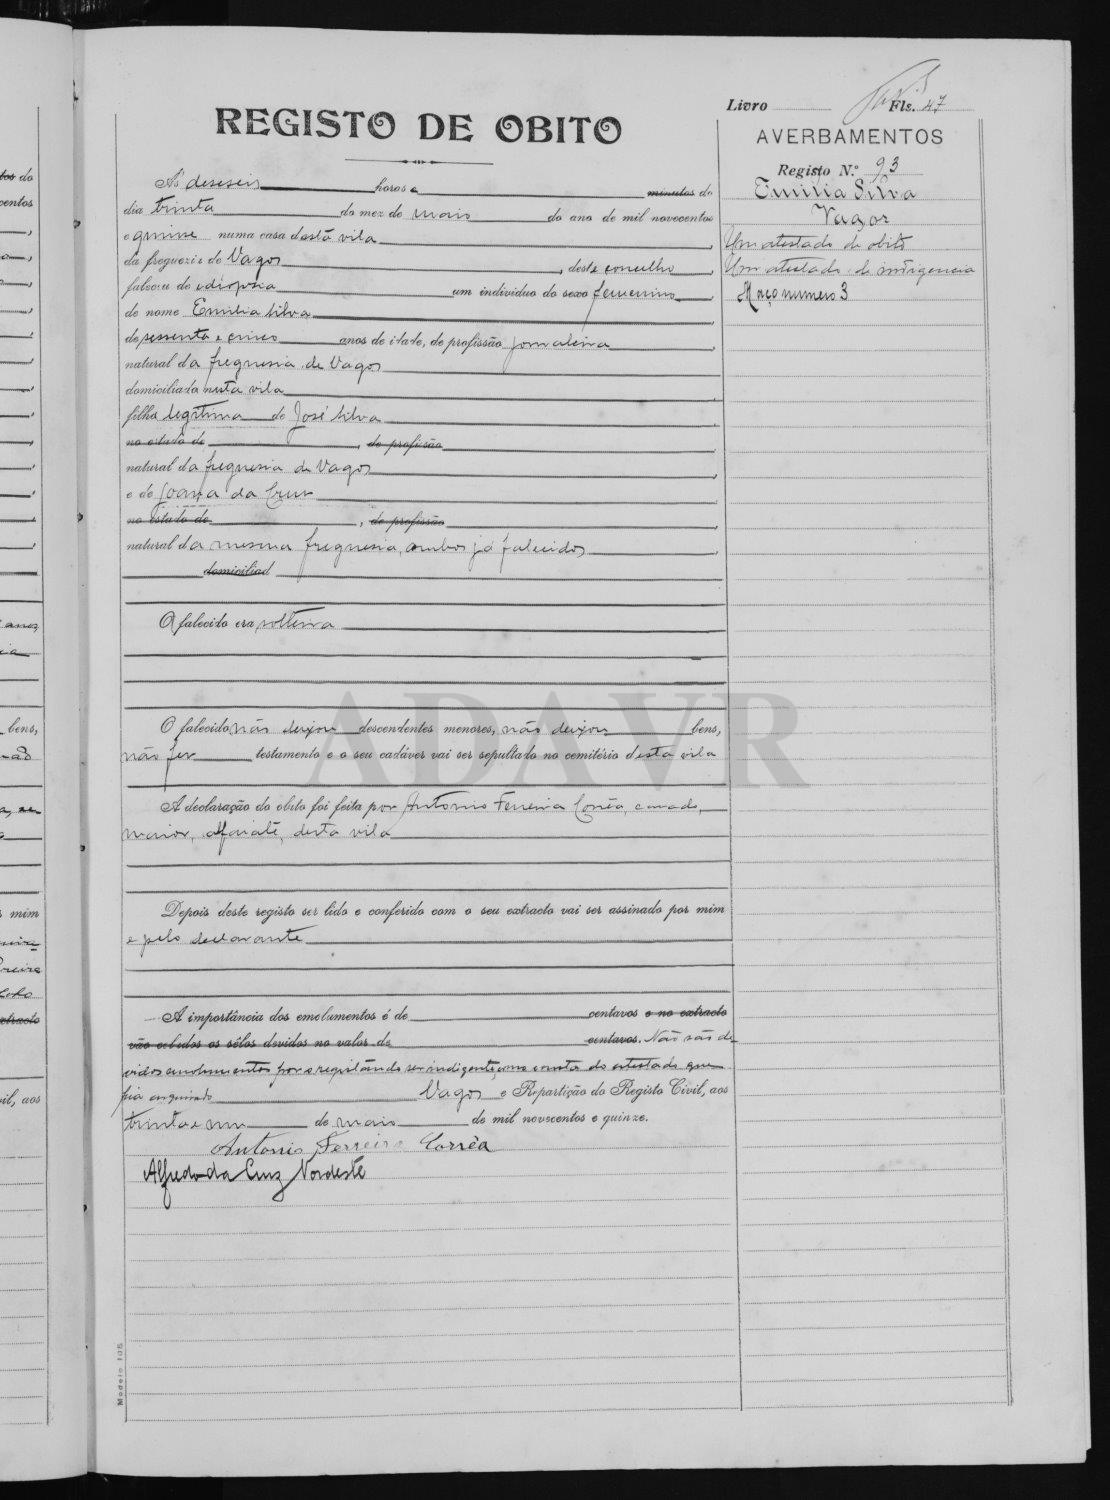 Livro Fls. 47
REGISTO DE OBITO
AVERBAMENTOS
Registo N.º 93
Emilia Silva
Vagos
Um atestado de obito
Um atestado de indigencia
Maço numero 3
Ás deseseis horas e minutos do
dia trinta do mez de maio do ano de mil novecentos
e quinse numa casa desta vila,
da freguezia de Vagos, deste concelho,
faleceu de um individuo do sexo femenino,
de nome Emilia Silva,
de sessenta e cinco anos de idade, de profissão jornaleira,
natural da freguesia de Vagos
domiciliada nesta vila,
filha legitima de José Silva
no estado de, de profissão
natural da freguesia de Vagos
e de Joana da Cruz
no estado de, de profissão,
natural da mesma freguesia, ambos já falecidos,
domiciliad
A falecida era solteira
O falecido não deixou descendentes menores, não deixou bens,
não fez testamento e o seu cadáver vai ser sepultado no cemitério desta vila
A declaração do obito foi feita por Antonio Ferreira Corrêa, casado,
maior, alfaiate, desta vila
Depois deste registo ser lido e conferido com o seu extracto vai ser assinado por mim
e pelo declarante
A importância dos emolumentos é de centavos e no extracto
vão colados os sêlos devidos no valor de centavos. Não são de-
vidos emolumentos por o registando ser indigente, como consta do atestado que
fica arquivado Vagos e Repartição do Registo Civil, aos
trinta e um de maio de mil novecentos e quinze.
Antonio Ferreira Corrêa
Alfredo da Cruz Nordeste
Modelo 105
ADAVR